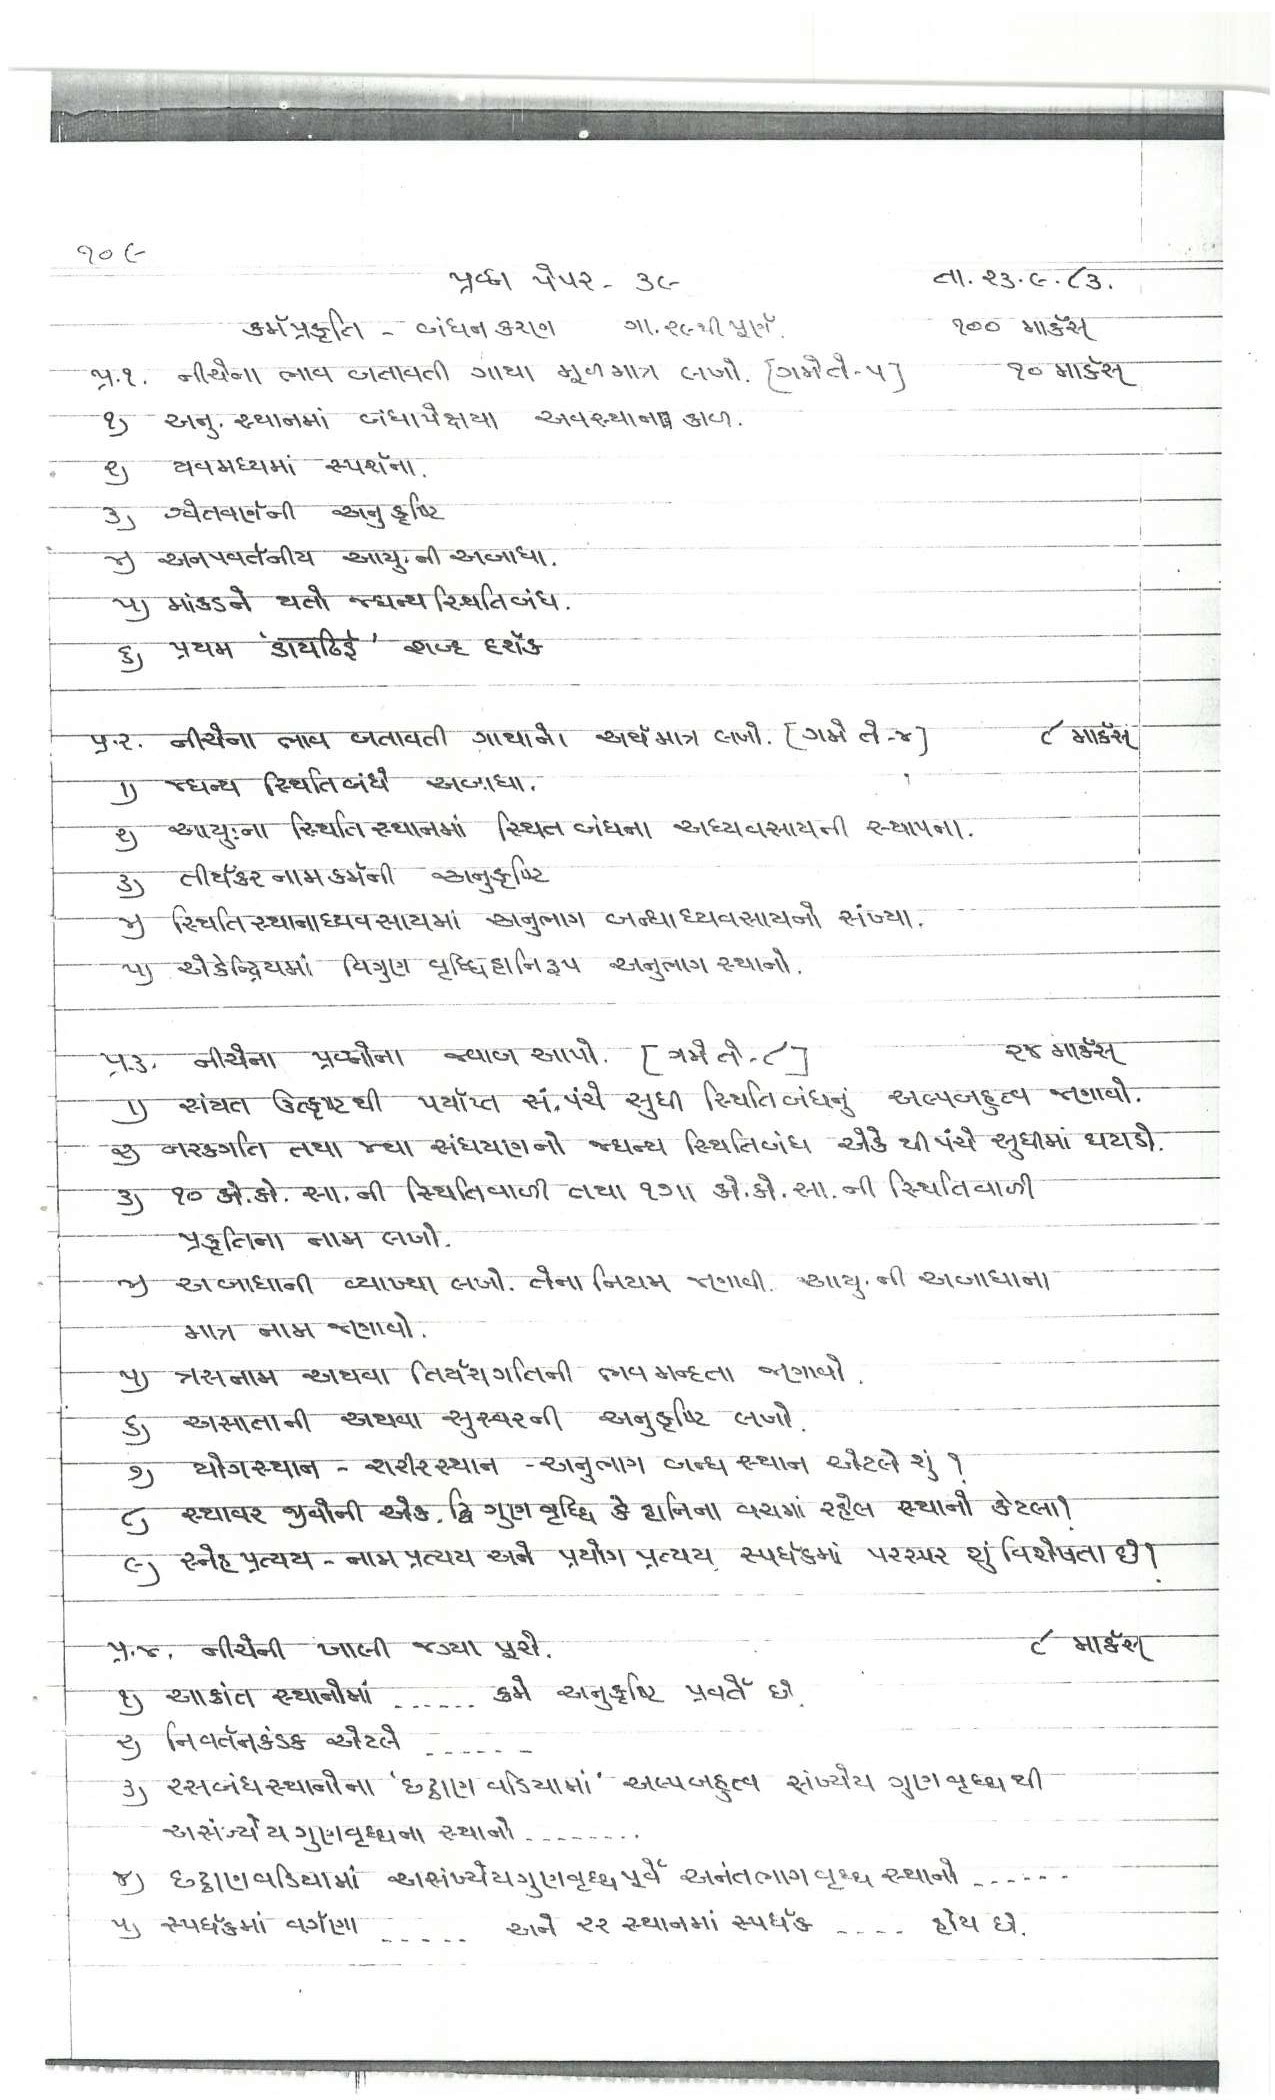 ૧૦૯
પ્રશ્ન પેપર - ૩૯ તા. ૨૩.૯.૮૩.
કર્મપ્રકૃતિ - બંધનકરણ ગા. ૨૯થી પૂર્ણ. ૧૦૦ માર્કસ
પ્ર.૧. નીચેના ભાવ બતાવતી ગાથા મૂળમાત્ર લખો. [ગમે તે-૫] ૧૦ માર્કસ
૧) અનુ. સ્થાનમાં બંધાપેક્ષયા અવસ્થાન કાળ.
૨) યવમધ્યમાં સ્પર્શના.
૩) શ્વેતવર્ણની અનુકૃષ્ટિ
૪) અનપવર્તનીય આયુ.ની અબાધા.
૫) માંકડને થતો જઘન્ય સ્થિતિબંધ.
૬) પ્રથમ 'ડાયઠિઈ' શબ્દ દર્શક
પ્ર.૨. નીચેના ભાવ બતાવતી ગાથાનો અર્થમાત્ર લખો. [ગમે તે-૪] ૮ માર્કસ
૧) જઘન્ય સ્થિતિબંધે અબાધા.
૨) આયુ:ના સ્થિતિસ્થાનમાં સ્થિત બંધના અધ્યવસાયની સ્થાપના.
૩) તીર્થંકર નામકર્મની અનુકૃષ્ટિ
૪) સ્થિતિસ્થાનાધ્યવસાયમાં અનુભાગ બન્ધાધ્યવસાયનો સંખ્યા.
૫) એકેન્દ્રિયમાં વિગુણ વૃધ્ધિહાનિરૂપ અનુભાગ સ્થાનો.
પ્ર.૩. નીચેના પ્રશ્નોના જવાબ આપો. [ગમે તે-૮] ૨૪ માર્કસ
૧) સંયત ઉત્કૃષ્ટથી પર્યાપ્ત સં.પંચે સુધી સ્થિતિબંધનું અલ્પબહુત્વ જણાવો.
૨) નરકગતિ તથા ૪થા સંઘયણનો જઘન્ય સ્થિતિબંધ એકે થી પંચે સુધીમાં ઘટાડો.
૩) ૧૦ કો.કો. સા.ની સ્થિતિવાળી તથા ૧૭ાા કો.કો.સા.ની સ્થિતિવાળી
પ્રકૃતિના નામ લખો.
૪) અબાધાની વ્યાખ્યા લખો. તેના નિયમ જણાવી. આયુ.ની અબાધાના
માત્ર નામ જણાવો.
૫) ત્રસનામ અથવા તિર્યંચગતિની ભવમન્દતા જણાવો.
૬) અસાતાની અથવા સુસ્વરની અનુકૃષ્ટિ લખો.
૭) યોગસ્થાન - શરીરસ્થાન - અનુભાગ બન્ધ સ્થાન એટલે શું ?
૮) સ્થાવર જીવોની એક. દ્વિ ગુણ વૃધ્ધિ કે હાનિના વચમાં રહેલ સ્થાનો કેટલા?
૯) સ્નેહ પ્રત્યય - નામ પ્રત્યય અને પ્રયોગ પ્રત્યય સ્પર્ધકમાં પરસ્પર શું વિશેષતા છે?
પ્ર.૪. નીચેની ખાલી જગ્યા પૂરો. ૮ માર્કસ
૧) આક્રાંત સ્થાનોમાં ...... ક્રમે અનુકૃષ્ટિ પ્રવર્તે છે.
૨) નિવર્તનકંડક એટલે ------
૩) રસબંધસ્થાનોના 'છટ્ઠાણ વડિયામાં' અલ્પબહુત્વ સંખ્યેય ગુણવૃધ્ધથી
અસંખ્યેયગુણવૃધ્ધના સ્થાનો --------
૪) છટ્ઠાણવડિયામાં અસંખ્યેયગુણવૃધ્ધ પૂર્વે અનંતભાગ વૃધ્ધ સ્થાનો ------
૫) સ્પર્ધકમાં વર્ગણા ----- અને ૨૨ સ્થાનમાં સ્પર્ધક ---- હોય છે.